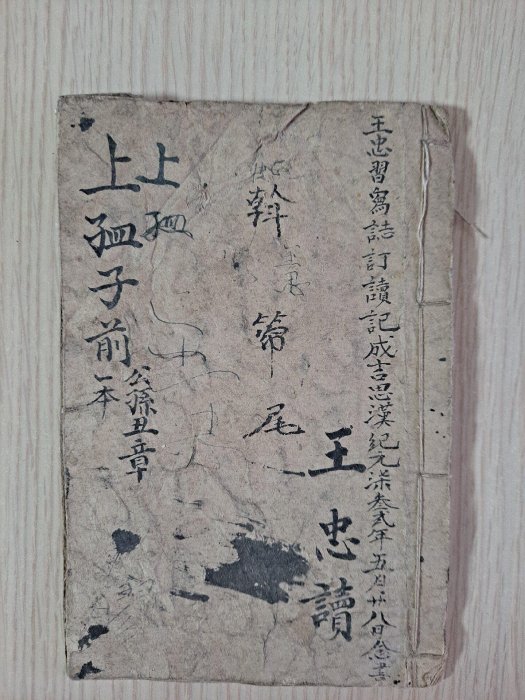 王忠習寫誌訂讀記成吉思漢紀元柒叁弍年五月廿八日念書
王忠讀
斡
王忠
第尾
上孟
上孟子前
公孫丑章
一本